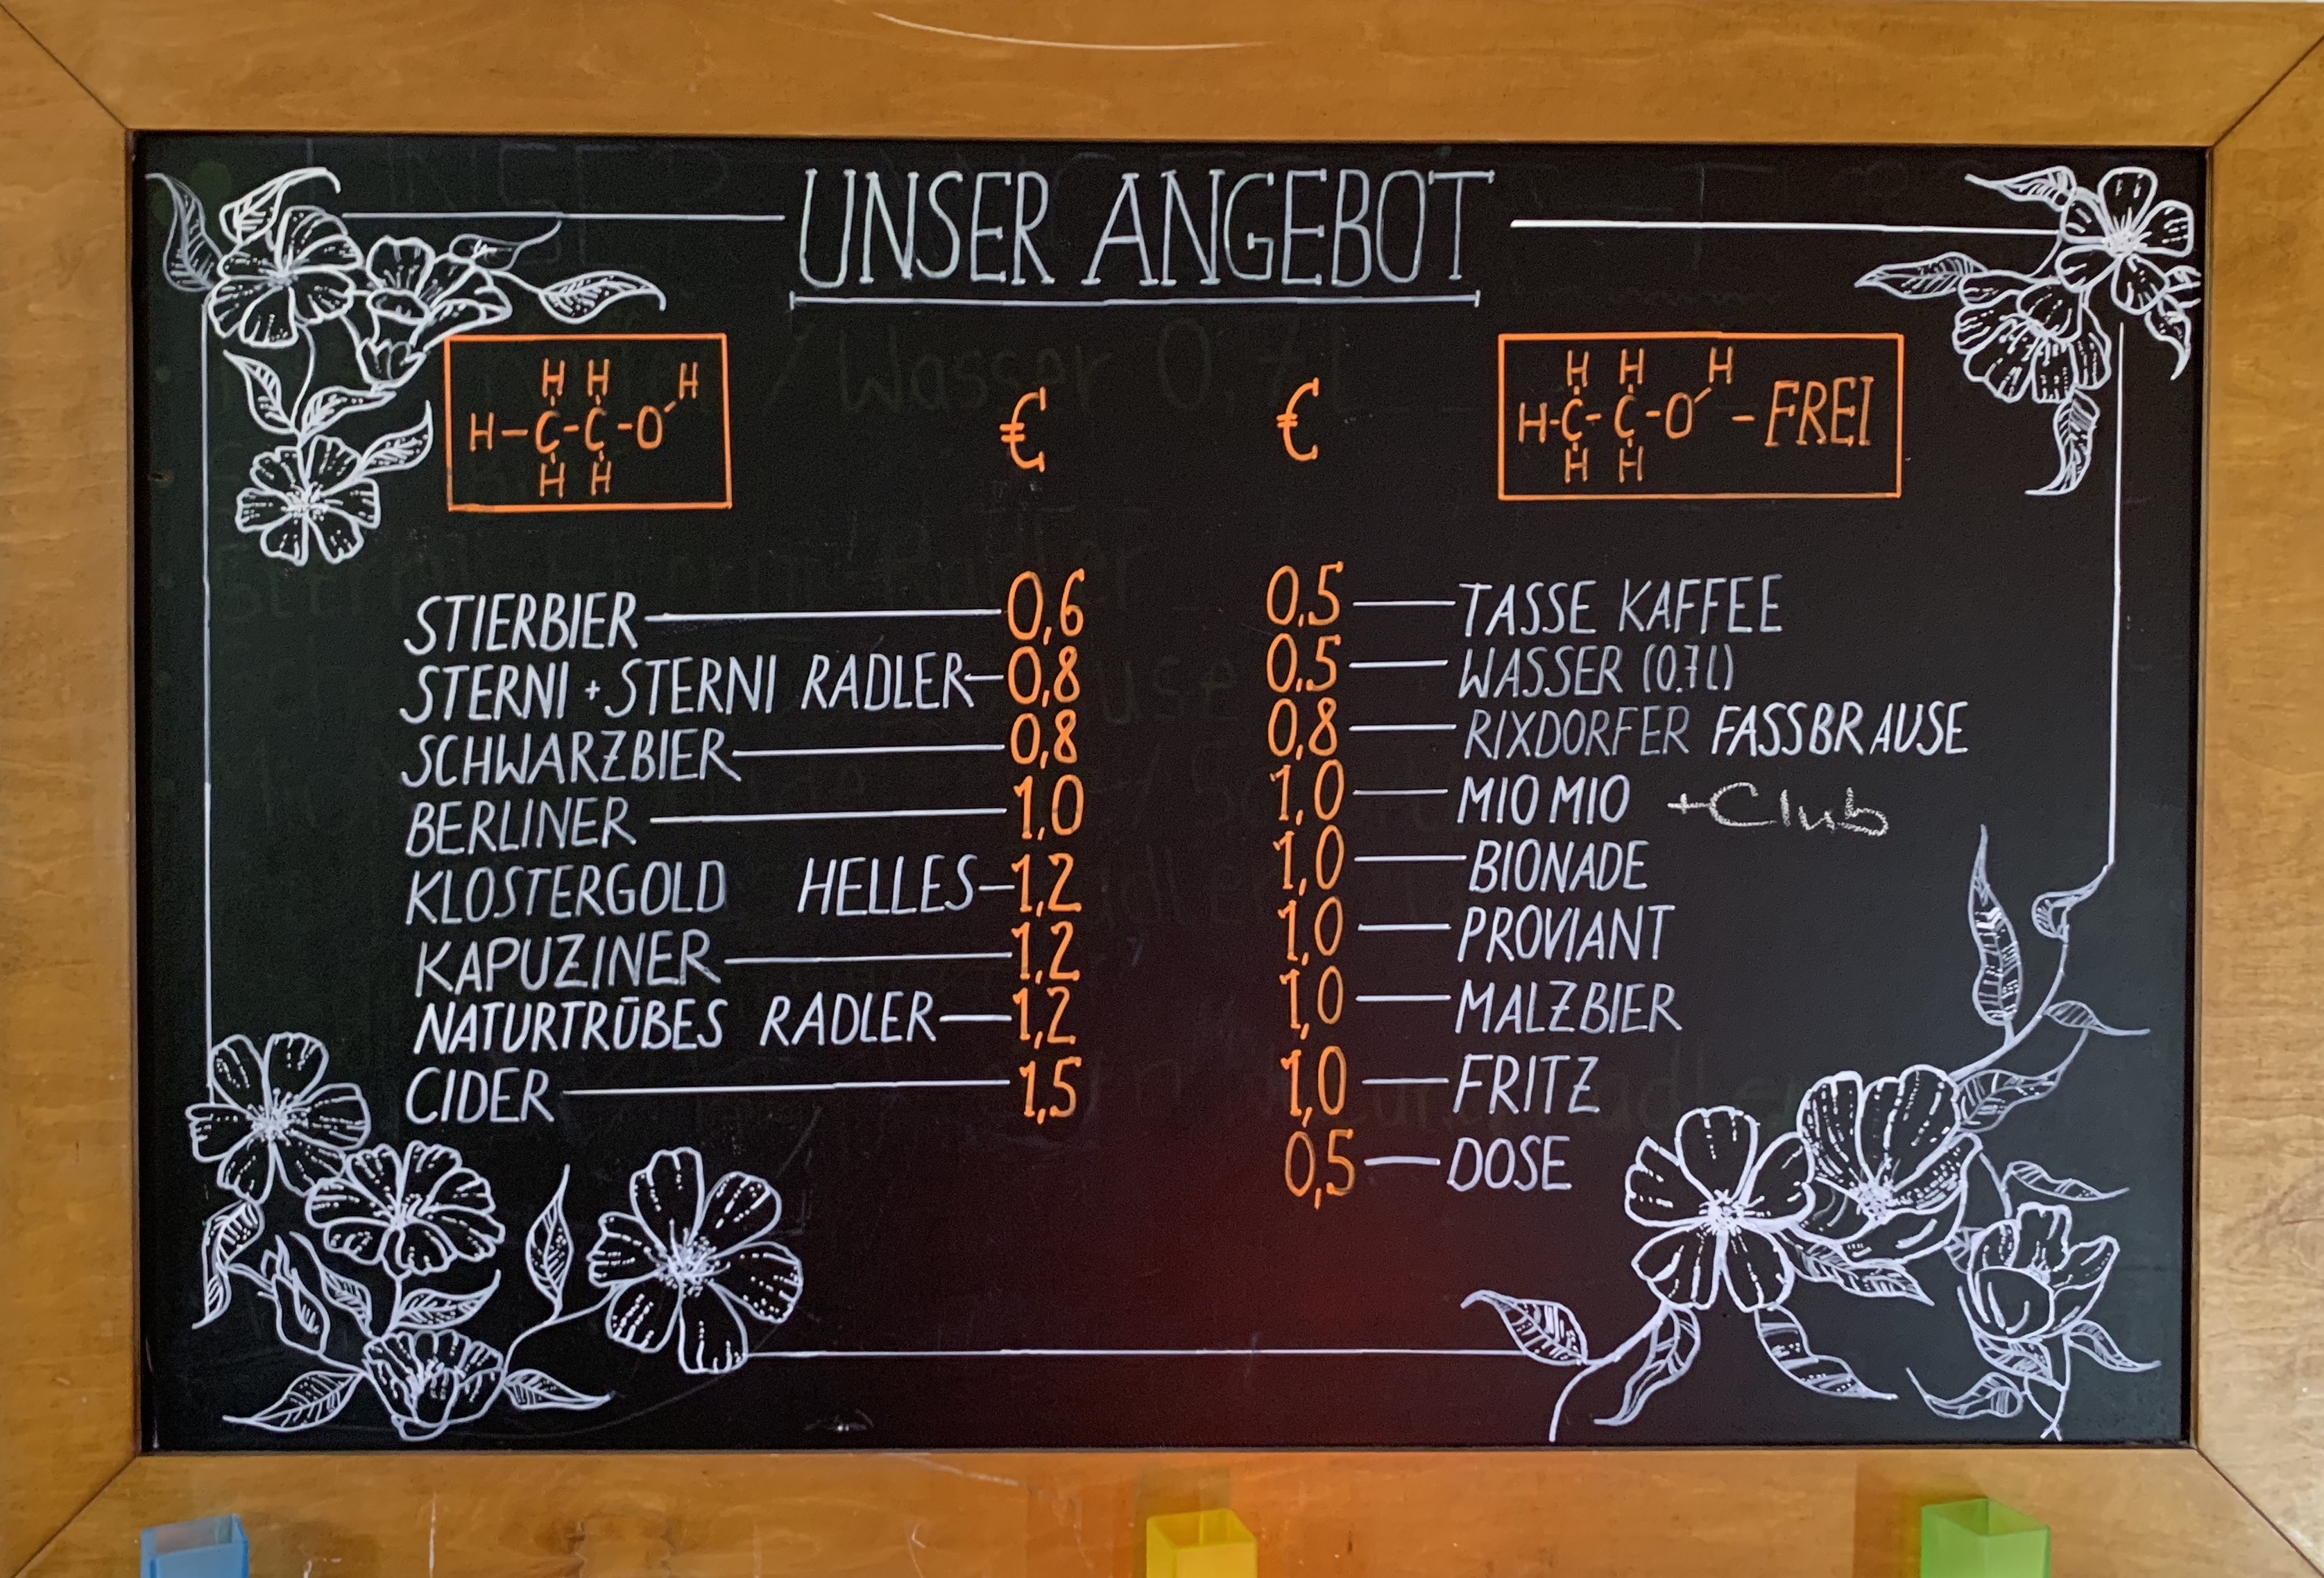 UNSER ANGEBOT
H H H
H-C-C-O
H H
€
€
H H H
H-C-C-O -FREI
H H
STIERBIER 0,6
STERNI + STERNI RADLER 0,8
SCHWARZBIER 0,8
BERLINER 1,0
KLOSTERGOLD HELLES 1,2
KAPUZINER 1,2
NATURTRÜBES RADLER 1,2
CIDER 1,5
0,5 TASSE KAFFEE
0,5 WASSER (0.7L)
0,8 RIXDORFER FASSBRAUSE
1,0 MIO MIO +Club
1,0 BIONADE
1,0 PROVIANT
1,0 MALZBIER
1,0 FRITZ
0,5 DOSE